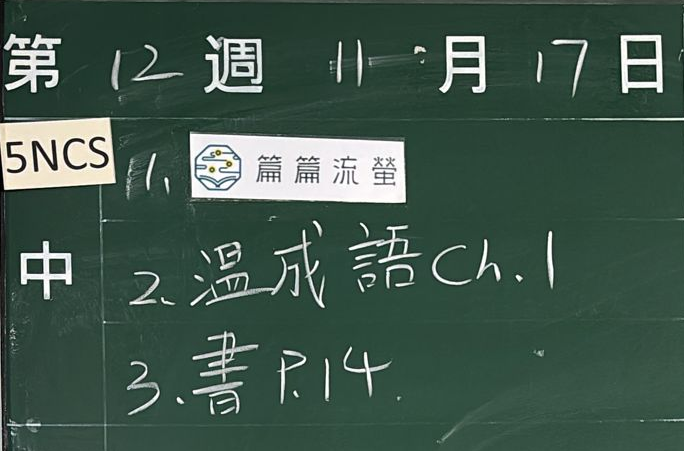 第 12 週 11 月 17 日
5NCS 1. 篇篇流螢
中 2. 溫成語 Ch. 1
3. 書 P.14.